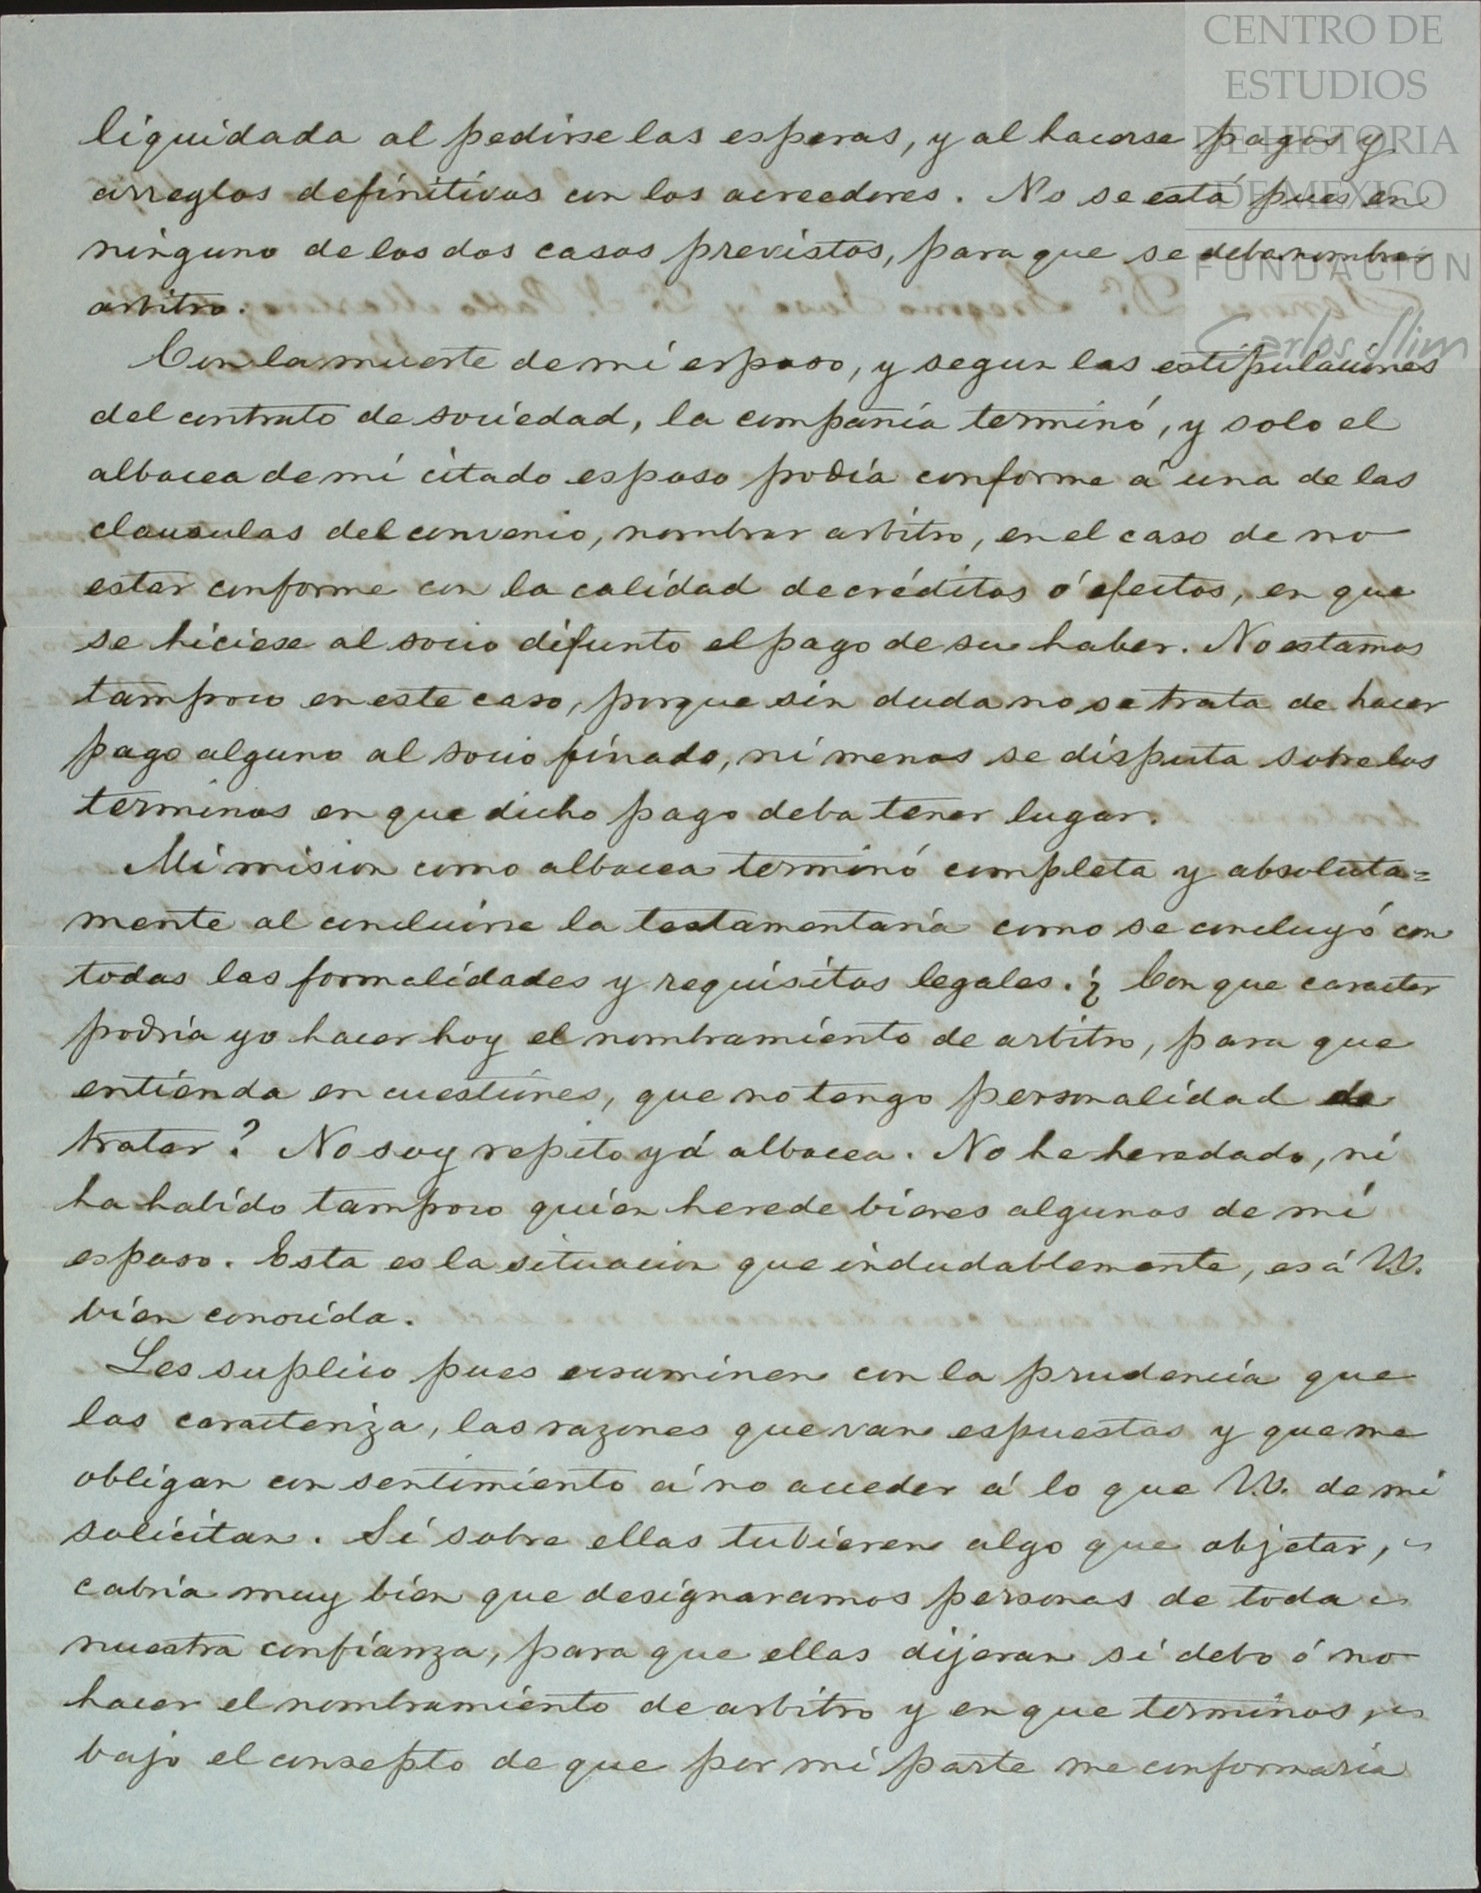 CENTRO DE
ESTUDIOS
DE HISTORIA
DE MEXICO
FUNDACION
Carlos Slim
liquidada al pedirse las esperas, y al hacerse pagos y
arreglos definitivos con los acreedores. No se está pues en
ninguno de los dos casos previstos, para que se deba nombrar
arbitro.
Con la muerte de mi esposo, y segun las estipulaciones
del contrato de sociedad, la compañia terminó, y solo el
albacea de mi citado esposo podia conforme á una de las
clausulas del convenio, nombrar arbitro, en el caso de no
estar conforme con la calidad de créditos ó efectos, en que
se hiciese al socio difunto el pago de su haber. No estamos
tampoco en este caso, porque sin duda no se trata de hacer
pago alguno al socio finado, ni menos se disputa sobre los
terminos en que dicho pago deba tener lugar.
Mi mision como albacea terminó completa y absoluta=
mente al concluirse la testamentaria como se concluyó con
todas las formalidades y requisitos legales. ¿Con que caracter
podria yo hacer hoy el nombramiento de arbitro, para que
entienda en cuestiones, que no tengo personalidad de
tratar? No soy repito yá albacea. No he heredado, ni
ha habido tampoco quien herede bienes algunos de mi
esposo. Esta es la situacion que indudablemente, es á V.V.
bien conocida.
Les suplico pues ecsaminen con la prudencia que
los caracteriza, las razones que van espuestas y que me
obligan con sentimiento á no acceder á lo que V.V. de mi
solicitan. Si sobre ellas tubieren algo que objetar,
cabria muy bien que designaramos personas de toda
nuestra confianza, para que ellas dijeran si debo ó no
hacer el nombramiento de arbitro y en que terminos,
bajo el consepto de que por mi parte me conformaria